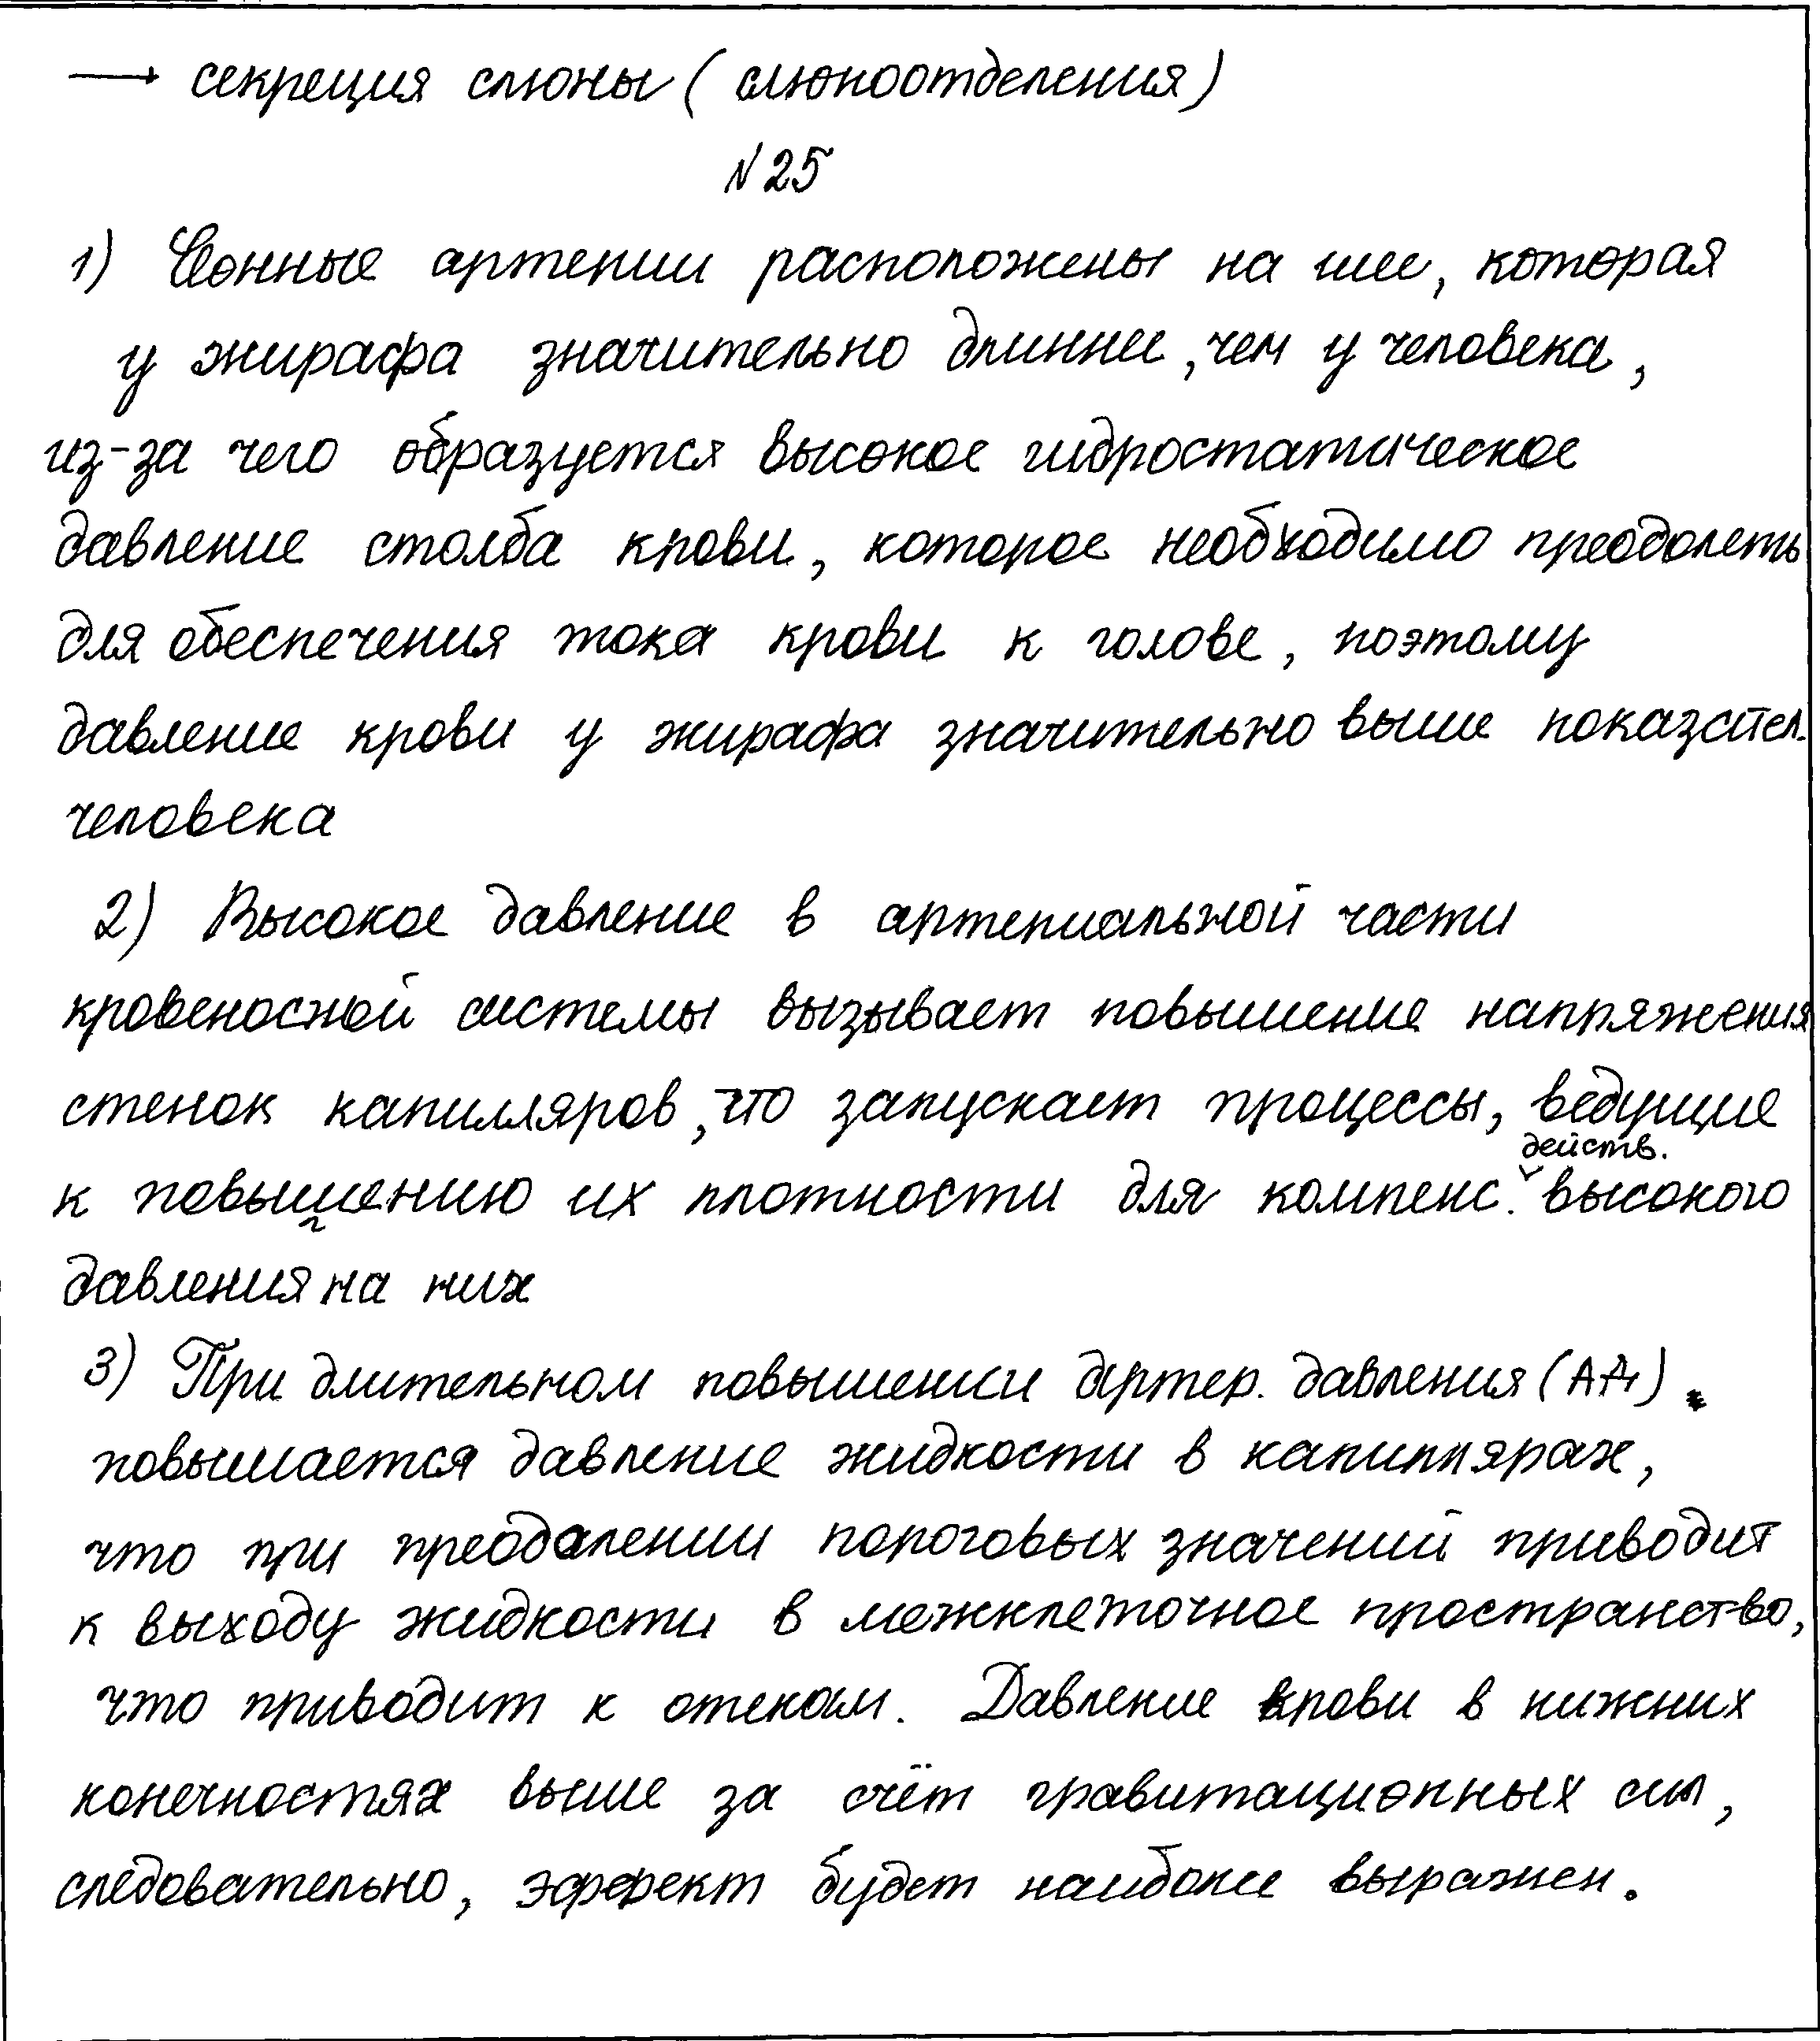 → секреция слюны (слюноотделения)
№25
1) Сонные артерии расположены на шее, которая
у жирафа значительно длиннее, чем у человека,
из-за чего образуется высокое гидростатическое
давление столба крови, которое необходимо преодолеть
для обеспечения тока крови к голове, поэтому
давление крови у жирафа значительно выше показател.
человека
2) Высокое давление в артериальной части
кровеносной системы вызывает повышение напряжения
стенок капилляров, что запускает процессы, ведущие
к повышению их плотности для компенс. действ. высокого
давления на них
3) При длительном повышении артер. давления (АД)
повышается давление жидкости в капиллярах,
что при преодолении пороговых значений приводит
к выходу жидкости в межклеточное пространство,
что приводит к отекам. Давление крови в нижних
конечностях выше за счёт гравитационных сил,
следовательно, эффект будет наиболее выражен.